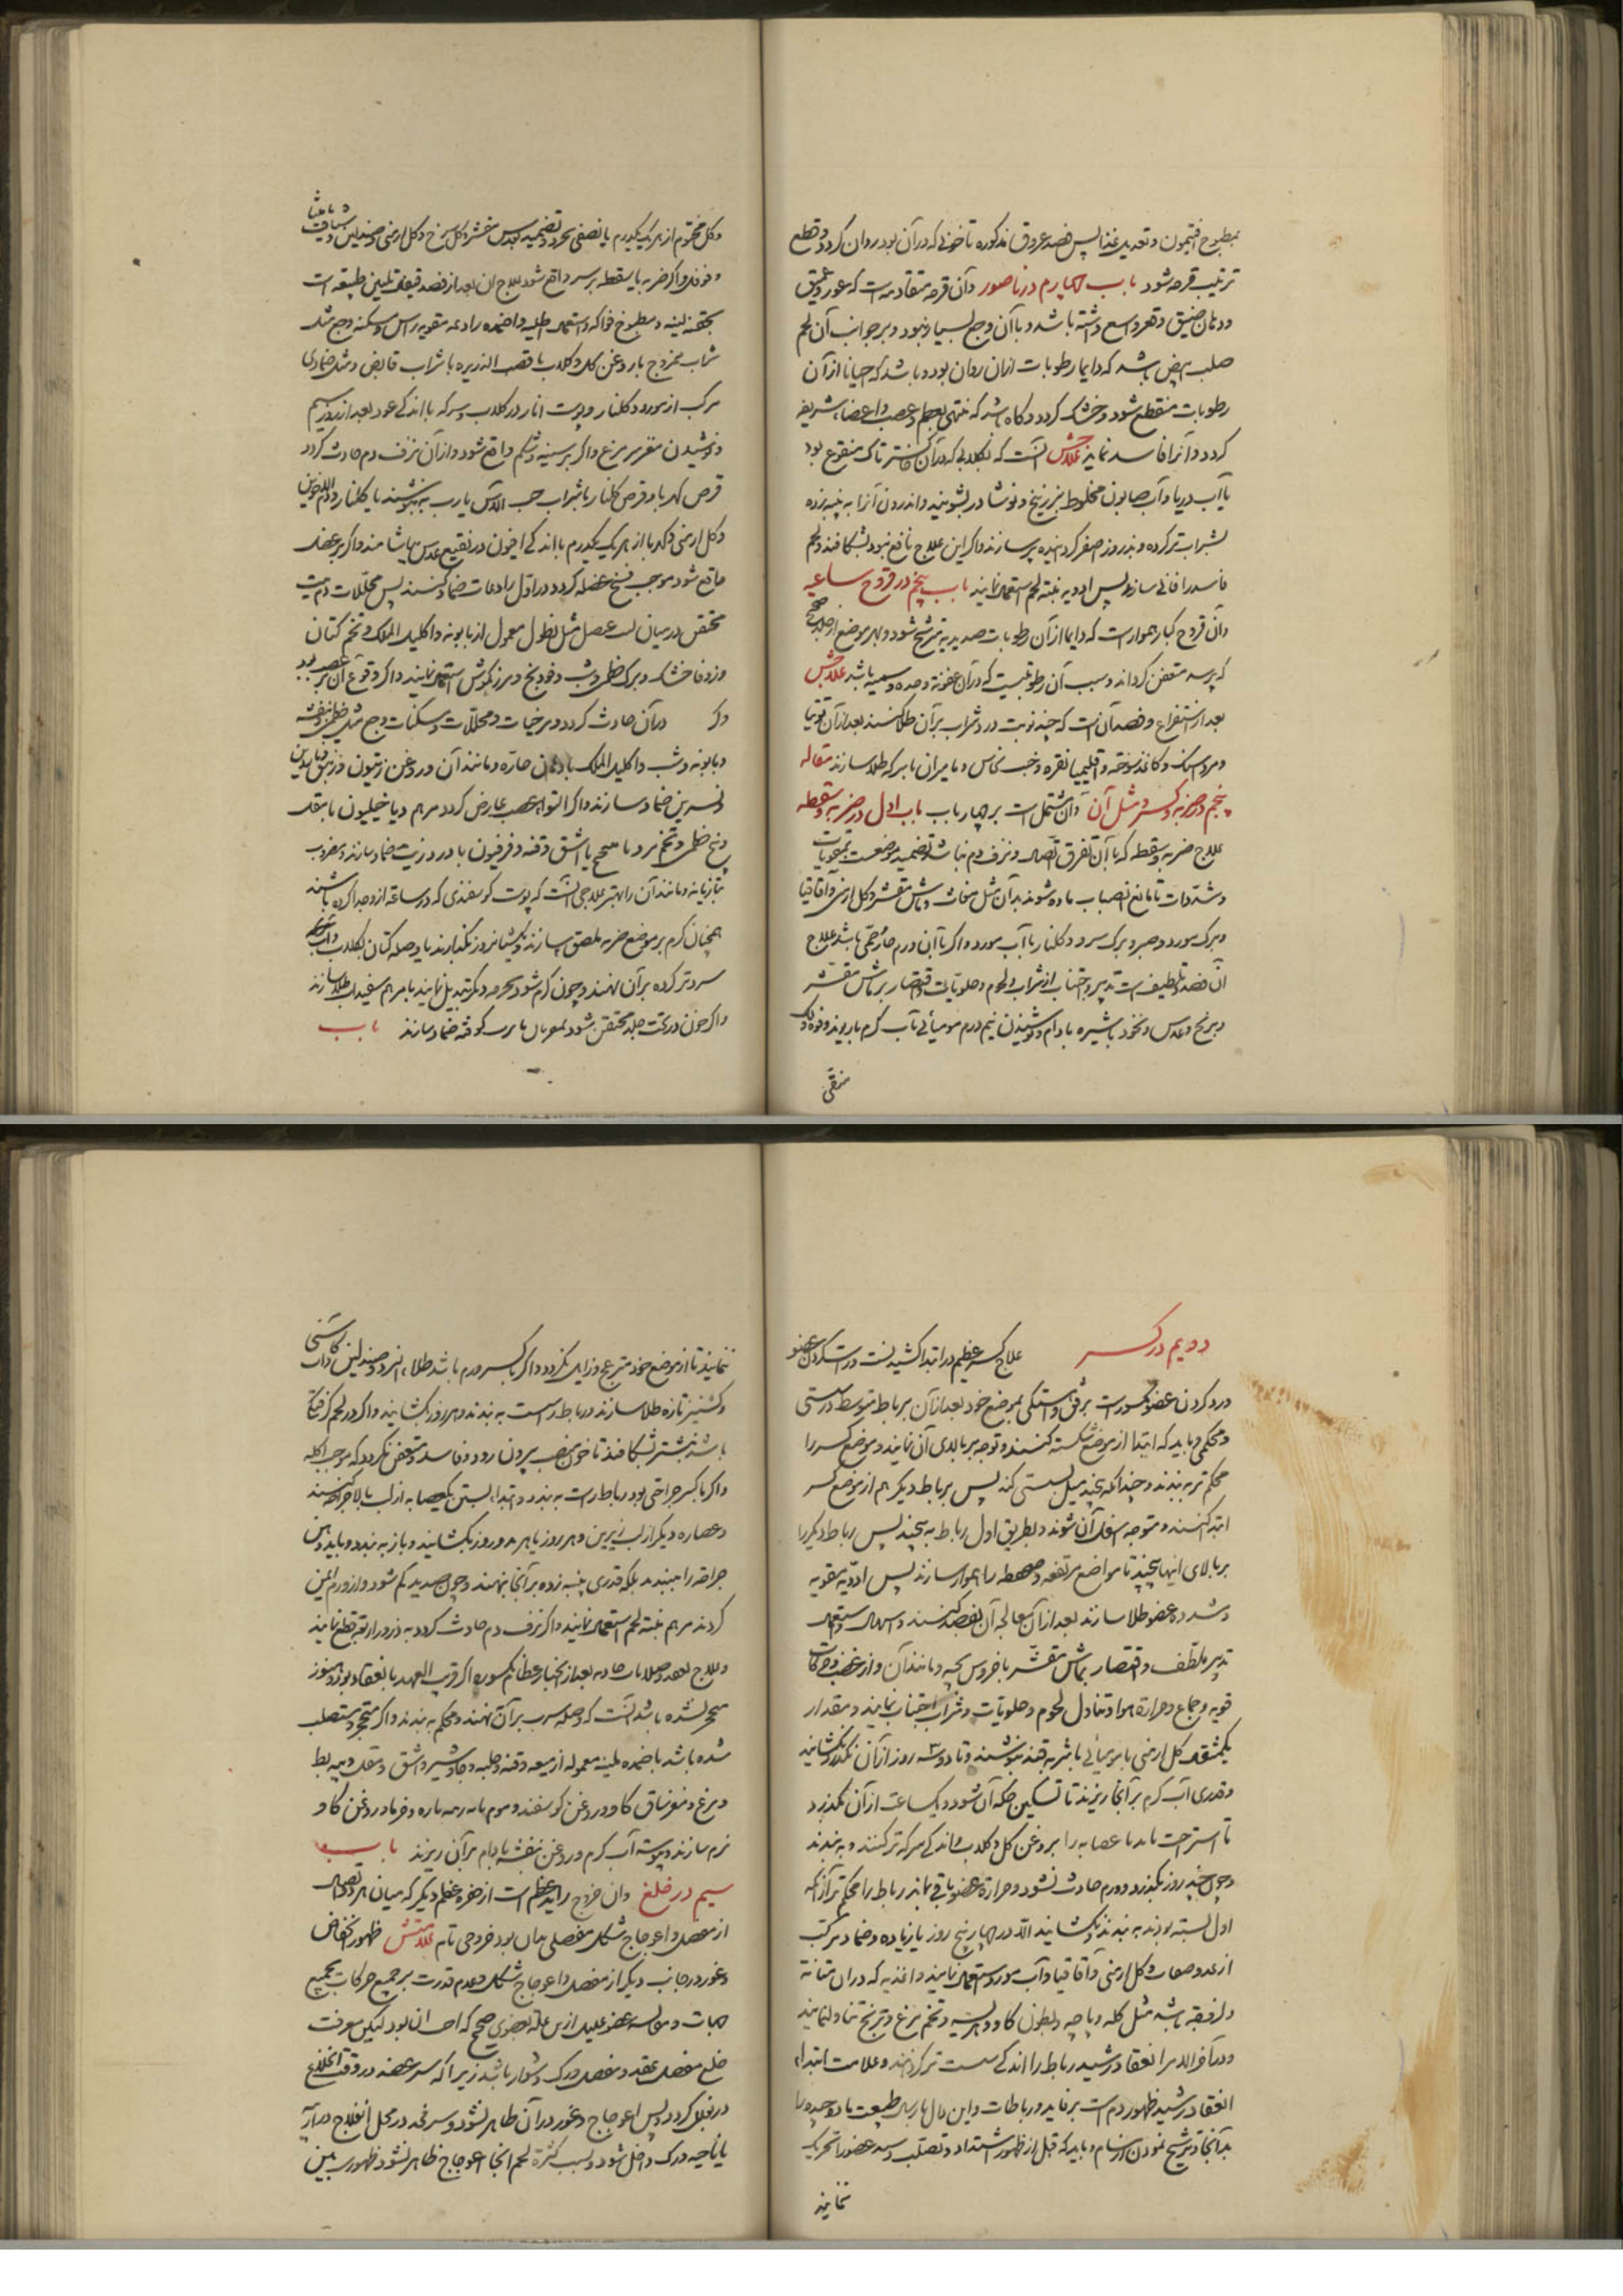 بمطبوخ افتیمون و تعدیل غذا پس فصد عروق مذکوره تا خونی که در آن بود روان کردد و قطع
ترتیب قرحه شود باب چهارم در ناصور و آن قرحه متقادمه است که غور عمیق
و دهان ضیق و قعر واسع داشته باشد و با آن وجع بسیار نبود و بر جوانب آن لحم
صلب ابیض باشد که دایما رطوبات ازان روان بود و باشد که احیانا از آن
رطوبات منقطع شود و خشک کردد و کاه باشد که منتهی بعظم و عصب و اعضاء شریفه
کردد و آنرا فاسد نماید علاجش آنست که بکلابی که در آن خاکستر تاک منقوع بود
یا آب دریا و آب صابون مخلوط بزرنیخ و نوشادر بشویند و اندرون آنرا به پنبه زده
بشراب تر کرده و بذرور اصفر کردانیده پر سازند و اکر این علاج نافع نبود بشکافند و لحم
فاسد را فانی سازند پس ادویه منبته لحم استعمال نمایند باب پنجم در قروح ساعیه
و آن قروح کبار هموار است که دایما از آن رطوبات صدیدیه مترشح شود و بهر موضع از جلد صحیح
که برسد متعفن کرداند و سبب آن رطوبتیست که در آن عفونة و حده و سمیه باشد علاجش
بعد از استفراغ و فصد آنست که چند نوبت درد شراب بر آن طلا کنند بعد از آن توتیا
و مرداسنک و کاغذ سوخته و اقلیمیا نقره و خبث نحاس و مامیران با سرکه طلا سازند مقاله
پنجم در ضربه و کسر و مثل آن و آن مشتمل است بر چهار باب باب اول در ضربه و سقطه
علاج ضربه و سقطه که با آن تفرق اتصال و نزف دم نباشد تضمید موضعست بمقویات
و مشددات تا مانع انصباب ماده شوند بدآن مثل مغاث و ماش مقشر و کل ارمنی و آقاقیا
و برک مورد و صبر و برک سرو و کلنار با آب مورد و اکر با آن ورم حار و حمی باشد علاج
آن فصد و تلطیف است تدبیر و اجتناب از شراب و لحوم و حلویات و اقتصار بر ماش مقشر
و برنج و عدس و نخود با شیره بادام و نوشیدن نیم درم مومیائی بآب کرم با ریوند و فوه و لک
منقی
و کل مختوم از هر یک یکدرم یا نصفی بخرد و تضمید بعدس مقشر و کل سرخ و کل ارمنی و صندلین و شیاف مامیثا
و فوفل و اکر ضربه یا سقطه بر سر واقع شود علاج آن بعد از فصد قیفال تلیین طبیعة است
بحقنه لینه و مطبوخ فواکه و استعمال اطلیه و اضمده رادعه مقویه راس و مسکنه وجع مثل
شراب ممزوج با روغن کل و کلاب با قصب الذریره با شراب قابض و مثل ضمادی
مرکب از مورد و کلنار و پوست انار در کلاب و سرکه با اندکی عود بعد از روز سیم
و نوشیدن مغز سر مرغ و اکر بر سینه و شکم واقع شود و از آن نزف دم حادث کردد
قرص کهربا و قرص کلنار با شراب حب الآس یا رب به بنوشند یا کلنار و دم الاخوین
و کل ارمنی و کهربا از هر یک یکدرم با اندکی افیون در نقیع عدس بیاشامند و اکر بر عضل
واقع شود موجب فسخ عضله کردد در اول رادعات ضماد کنند پس محللات دم میت
محتقن در میان لیف عضل مثل نطول معمول از بابونه و اکلیل الملک و تخم کتان
و زوفا خشک و برک خطمی و شبت و فودنج و مرزنکوش استعمال نمایند و اکر وقوع آن بر عصب بود
در آن حادث کردد و مرخیات و محللات و مسکنات وجع مثل خطمی و بنفشه
و بابونه و شبت و اکلیل الملک با دهان حاره و مانند آن و روغن زیتون و زنبق و یاسمین
و نسرین ضماد سازند و اکر التواء عصب عارض کردد مرهم دیاخیلیون با مقل
و بیخ خطمی و تخم مرو با میعه یا اشق و قنه و فرفیون با دردی زیت ضماد سازند و مضروب
بتازیانه و مانند آن را بهتر علاجی آنست که پوست کوسفندی که در ساعة ازو جدا کرده باشند
همچنان کرم بر موضع ضربه ملصق سازند و یکشبانروز بکذارند یا وصله کتان بکلاب و آب
سرد تر کرده بر آن نهند و چون کرم شود بخرقه دیکر تبدیل نمایند یا مرهم سفیداب طلا سازند
و اکر خون در تحت جلد محتقن شود بمویان با ترب کوفته ضماد سازند باب
دویم در کسر علاج کسر عظیم در ابتدا کشیدنست و راست کردن عضو
و رد کردن عضو مکسور است برفق و آهستکی بموضع خود بعد از آن بر باط متوسط در سستی
و محکمی و باید که ابتدا از موضع شکسته کنند و توجه ببالای آن نمایند و موضع کسر را
محکم تر به بندند و چندانکه پیچند میل بسستی کند پس برباط دیکر هم از موضع کسر
ابتدا کنند و متوجه اسفل آن شوند و بطریق اول رباط به پیچند پس رباط دیکر را
بر بالای اینها پیچند تا مواضع مرتفعه و منحطه را هموار سازند پس ادویه مقویه
و مشدده عضو طلا سازند بعد از آن معالجه آن بفصد کنند و اسهال و استعمال
تدبیر ملطف و اقتصار بماش مقشر یا خروس بچه و مانند آن و از غضب و حرکات
قویه و جماع و حرارة هوا و تناول لحوم و حلویات و شراب اجتناب نمایند و مقدار
یکمثقال کل ارمنی با مومیائی با شربه قند بنوشند و تا دو سه روز از آن نکذرد نکشایند
و قدری آب کرم بر آنجا ریزند تا تسکین حکه آن شود و یکساعت از آن بکذرد
تا استراحت یابد یا عصابه را بروغن کل و کلاب و اندکی سرکه تر کنند و به بندند
و چون چند روز بکذرد و ورم حادث نشود و حرارة عضو باقی نماند رباط را محکم تر از آنکه
اول بسته بودند به بندند و نکشایند الا در چهار پنج روز یا زیاده و ضماد مرکب
از عدد و مغاث و کل ارمنی و آقاقیا و آب مورد استعمال نمایند و اغذیه که در ان متانة
و لزوجة باشد مثل کله و پاچه و بطون کاو و هریسه و تخم مرغ و برنج تناول نمایند
و در آخر الامر انعقاد دشبد رباط را اندکی سست تر کردانند و علامت ابتداء
انعقاد دشبد ظهور دم است بر فاید و رباطات و این دال بارسال طبیعت ماده جیده را
بدآنجا و ترشیح نمودن از مسام و باید که قبل از ظهور اشتداد و تصلب دشبد عضو را تحریک
نمایند
ننمایند تا از موضع خود منزعج و زایل نکردد و اکر با کسر ورم باشد طلاء سرد و صندلین و آب کاسنی
و کشنیز تازه طلا سازند و رباط سست به بندند و هر روز بکشایند و اکر در لحم کرفتکی
باشد بنشتر بشکافند تا خون منصب بیرون رود و فاسد و متعفن نکردد که موجب اکله
و اکر با کسر جراحتی بود رباط راست به بندد و ابتداء بستن یکعصابه از لب بالا جراحة کنند
و عصابه دیکر از لب زیرین و هر روز یا هر دو روز بکشایند و باز به بندد و باید دهن
جراحة را نبندند بلکه قدری پنبه زده بر آنجا نهند و چون صدید کم شود و از ورم ایمن
کردند مرهم منبته لحم استعمال نمایند و اکر نزف دم حادث کردد به ذرورات قطع نمایند
و علاج عقد و صلابات حادثه بعد از انجبار عظام مکسوره اکر قریب العهد بانعقاد بود و هنوز
متحجر نشده باشد آنست که وصله سرب بر آن نهند و محکم به بندند و اکر متحجر و متصلب
شده باشد باضمده ملینه معموله از میعه و قنه و حلبه و جاوشیر و اشق و مقل و پیه بط
و مرغ و مغز ساق کاو و روغن کوسفند و موم با رهم پاره و خرما در روغن کاو
نرم سازند و پیوسته آب کرم و روغن بنفشه بادام بر آن ریزند باب
سیم در خلع و ان خروج زاید عظم است از حفره عظم دیکر که میان هر دو اتصال
از مفصل و اعوجاج شکل مفصلی بدان بود خروجی تام علامتش ظهور انخفاض
و غور در جانب دیکر از مفصل و اعوجاج شکل و عدم قدرت بر جمیع حرکات بجمیع
جهات و مقایسه عضو علیل ازین علة بعضوی صحیح که احسان بود لیکن معرفت
خلع مفصل عضد و مفصل ورک دشوار باشد زیرا که سر عضد در وقت انخلاع
در بغل کردد پس اعوجاج و غور در آن ظاهر نشود و سر فخذ در محل انخلاع درآید
یا ناحیه ورک داخل شود و بسبب کثرة لحم آنجا اعوجاج ظاهر نشود ظهور بین